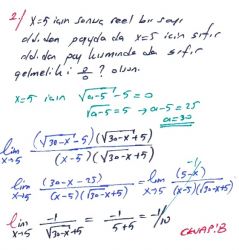 2/ x=5 için sonuç reel bir sayı
old.dan paydada x=5 için sıfır
old.dan pay kısmında da sıfır
gelmeli ki 0/0 ? olsun.
x=5 için √(a-5) - 5 = 0
√(a-5) = 5 → a-5 = 25
a=30
lim x→5 (√(30-x) - 5)(√(30-x) + 5) / (x-5)(√(30-x) + 5)
lim x→5 (30-x-25) / (x-5)(√(30-x) + 5) = lim x→5 (5-x) -1 / (x-5)(√(30-x) + 5)
lim x→5 -1 / √(30-x) + 5 = -1 / 5+5 = -1/10
CEVAP: B